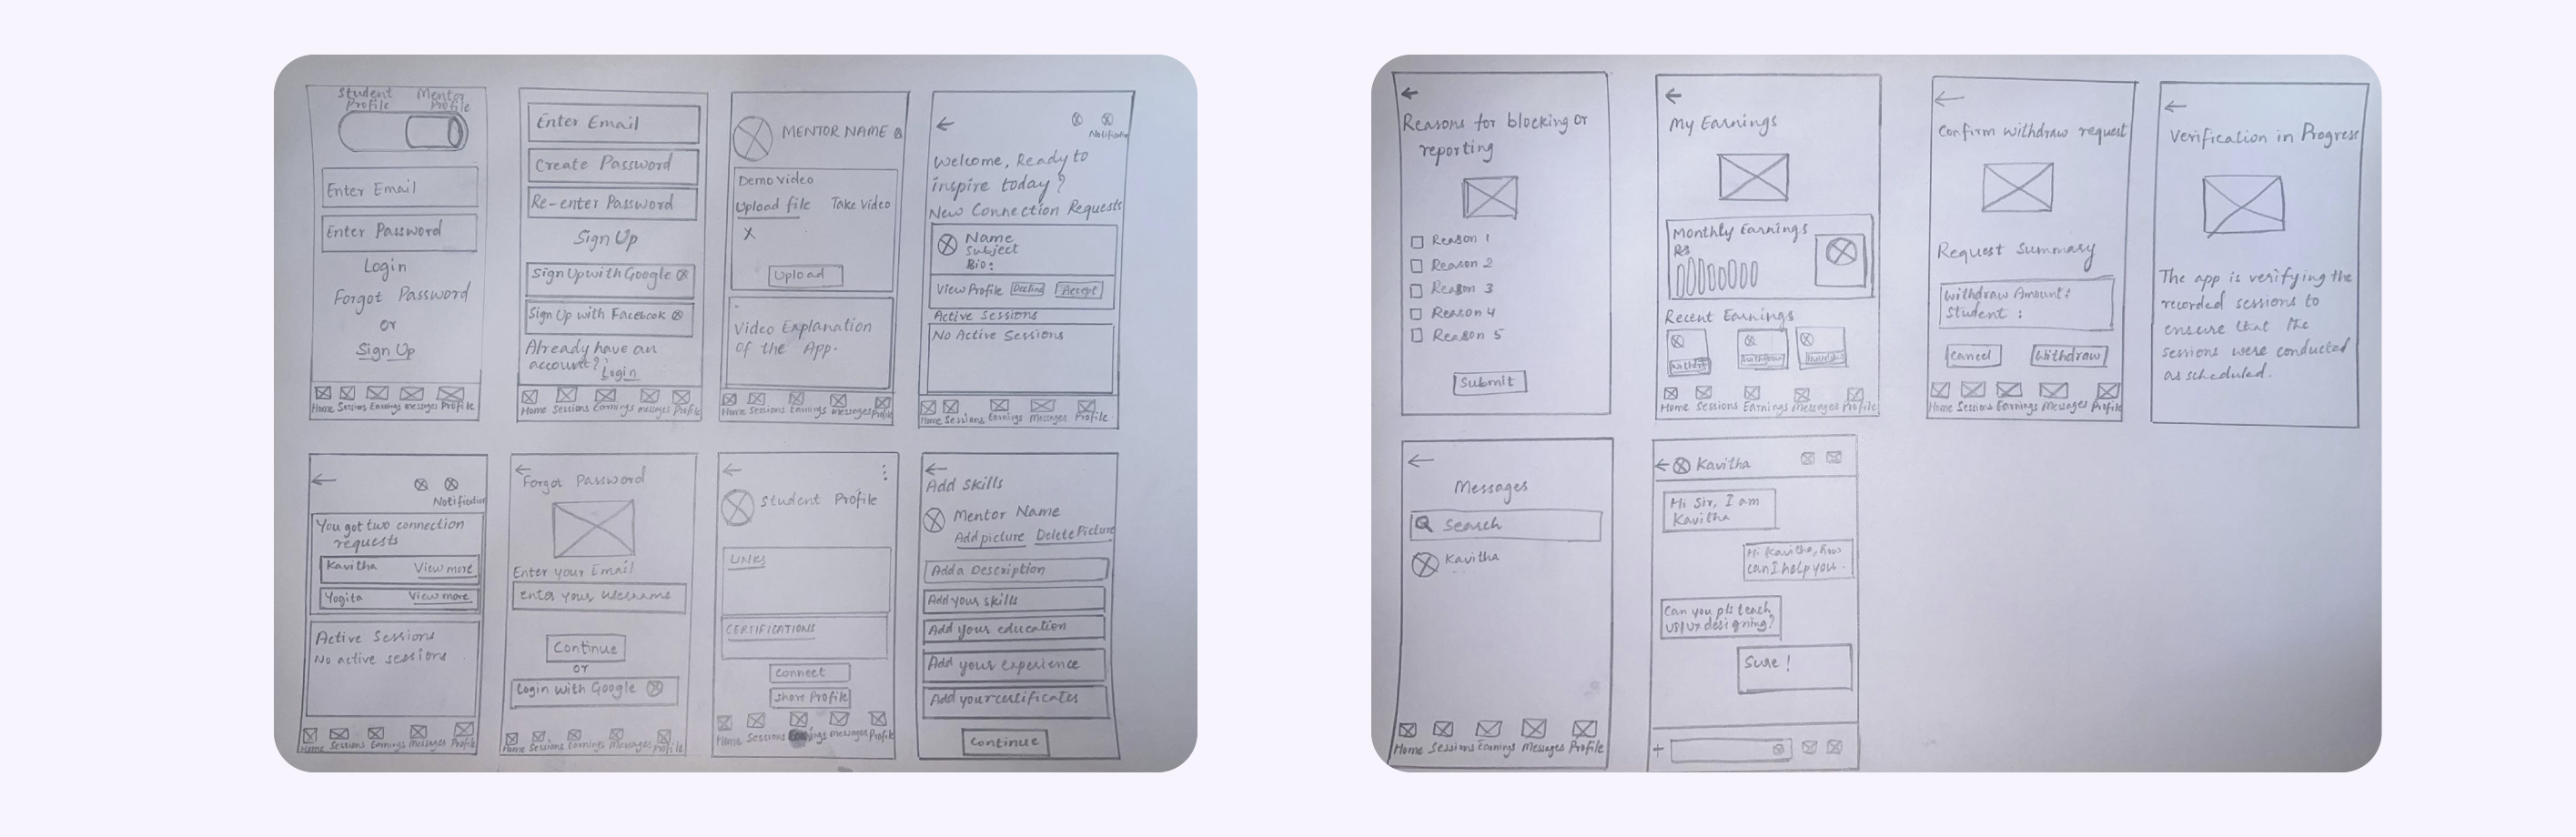 Student Profile
Mentor Profile
Enter Email
Enter Password
Login
Forgot Password
or
Sign Up
Home Sessions Earning Messages Profile
Enter Email
Create Password
Re-enter Password
Sign Up
Sign Up with Google
Sign Up with Facebook
Already have an
account? Login
Home Sessions Earnings Messages Profile
MENTOR NAME
Demo Video
Upload file Take Video
X
Upload
Video Explanation
of the App.
Home Sessions Earnings Messages Profile
Notification
Welcome, Ready to
inspire today?
New Connection Requests
Name
Subject
Bio:
View Profile Decline Accept
Active Sessions
No Active Sessions
Home Sessions Earnings Messages Profile
Notification
You got two connection
requests
Kavitha View more
Yogita View more
Active Sessions
No active sessions
Home Sessions Earnings Messages Profile
Forgot Password
Enter your Email
enter your username
Continue
or
Login with Google
Home Sessions Earnings Messages Profile
Student Profile
LINKS
CERTIFICATIONS
Connect
Share Profile
Home Sessions Earnings Messages Profile
Add Skills
Mentor Name
Add picture Delete Picture
Add a Description
Add your skills
Add your education
Add your experience
Add your certificates
Continue
Reasons for blocking or
reporting
Reason 1
Reason 2
Reason 3
Reason 4
Reason 5
Submit
My Earnings
Monthly Earnings
Rs
Recent Earnings
Withdraw Withdraw Withdraw
Home Sessions Earnings Messages Profile
Confirm withdraw request
Request Summary
Withdraw Amount:
Student :
Cancel Withdraw
Home Sessions Earnings Messages Profile
Verification in Progress
The app is verifying the
recorded sessions to
ensure that the
sessions were conducted
as scheduled.
Messages
Search
Kavitha
Home Sessions Earnings Messages Profile
Kavitha
Hi Sir, I am
Kavitha
Hi Kavitha, how
can I help you.
Can you pls teach
UI/UX designing?
Sure!
+